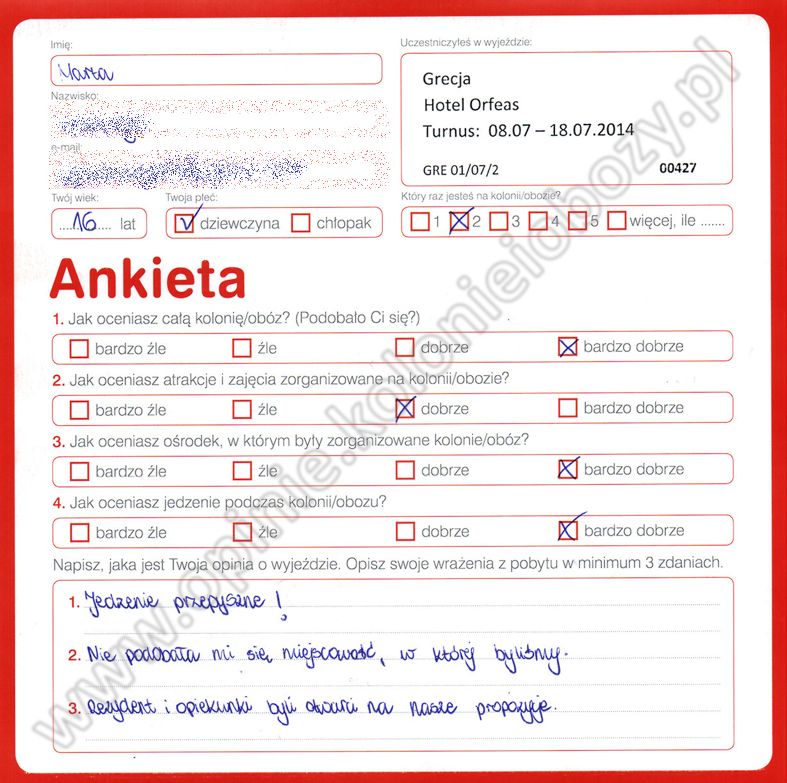 Imię:
Uczestniczyłeś w wyjeździe:
Marta
Grecja
Hotel Orfeas
Turnus: 08.07 – 18.07.2014
GRE 01/07/2 00427
Nazwisko:
e-mail:
Twój wiek:
Twoja płeć:
Który raz jesteś na kolonii/obozie?
16 lat
dziewczyna chłopak
1 2 3 4 5 więcej, ile .......
Ankieta
1. Jak oceniasz całą kolonię/obóz? (Podobało Ci się?)
bardzo źle źle dobrze bardzo dobrze
2. Jak oceniasz atrakcje i zajęcia zorganizowane na kolonii/obozie?
bardzo źle źle dobrze bardzo dobrze
3. Jak oceniasz ośrodek, w którym były zorganizowane kolonie/obóz?
bardzo źle źle dobrze bardzo dobrze
4. Jak oceniasz jedzenie podczas kolonii/obozu?
bardzo źle źle dobrze bardzo dobrze
Napisz, jaka jest Twoja opinia o wyjeździe. Opisz swoje wrażenia z pobytu w minimum 3 zdaniach.
1. Jedzenie przepyszne!
2. Nie podobała mi się miejscowość, w której byliśmy.
3. Rezydent i opiekunki byli otwarci na nasze propozycje.
www.opinie.kolonieiobozy.pl